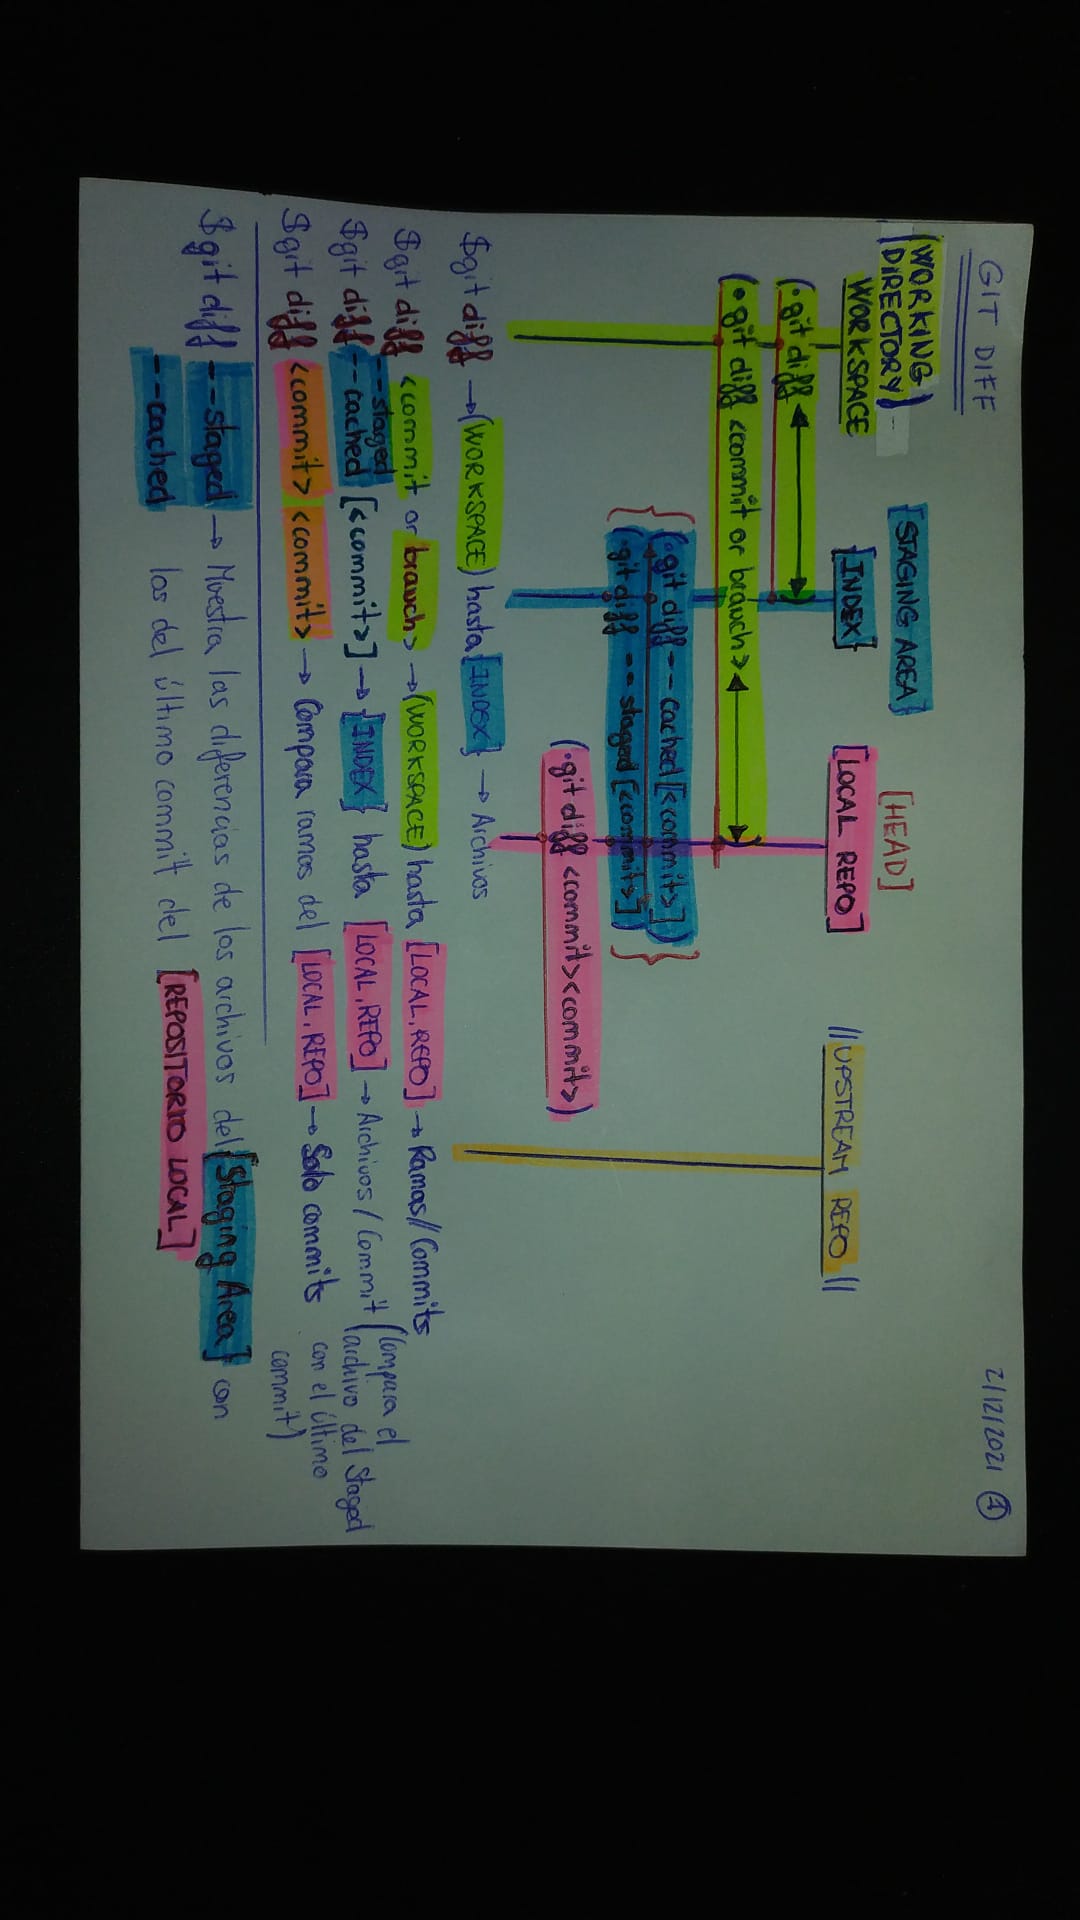 GIT DIFF
2/12/2021 1
(WORKING
DIRECTORY)
WORKSPACE
{STAGING AREA}
{INDEX}
[HEAD]
[LOCAL REPO]
||UPSTREAM REPO||
(·git diff)
(·git diff <commit or branch>)
{(·git diff -- cached [<commit>])
(·git diff -- staged [<commit>])}
(·git diff <commit><commit>)
$git diff → (WORKSPACE) hasta {INDEX} → Archivos
$git diff <commit or branch> → (WORKSPACE) hasta [LOCAL.REPO] → Ramas//Commits
--staged
$git diff --cached [<commit>] → {INDEX} hasta [LOCAL.REPO] → Archivos / Commit (Compara el
archivo del Staged
con el último
commit)
$git diff <commit> <commit> → Compara ramas del [LOCAL.REPO] → Solo commits
$git diff --staged → Muestra las diferencias de los archivos del {Staging Area} con
--cached los del último commit del [REPOSITORIO LOCAL]